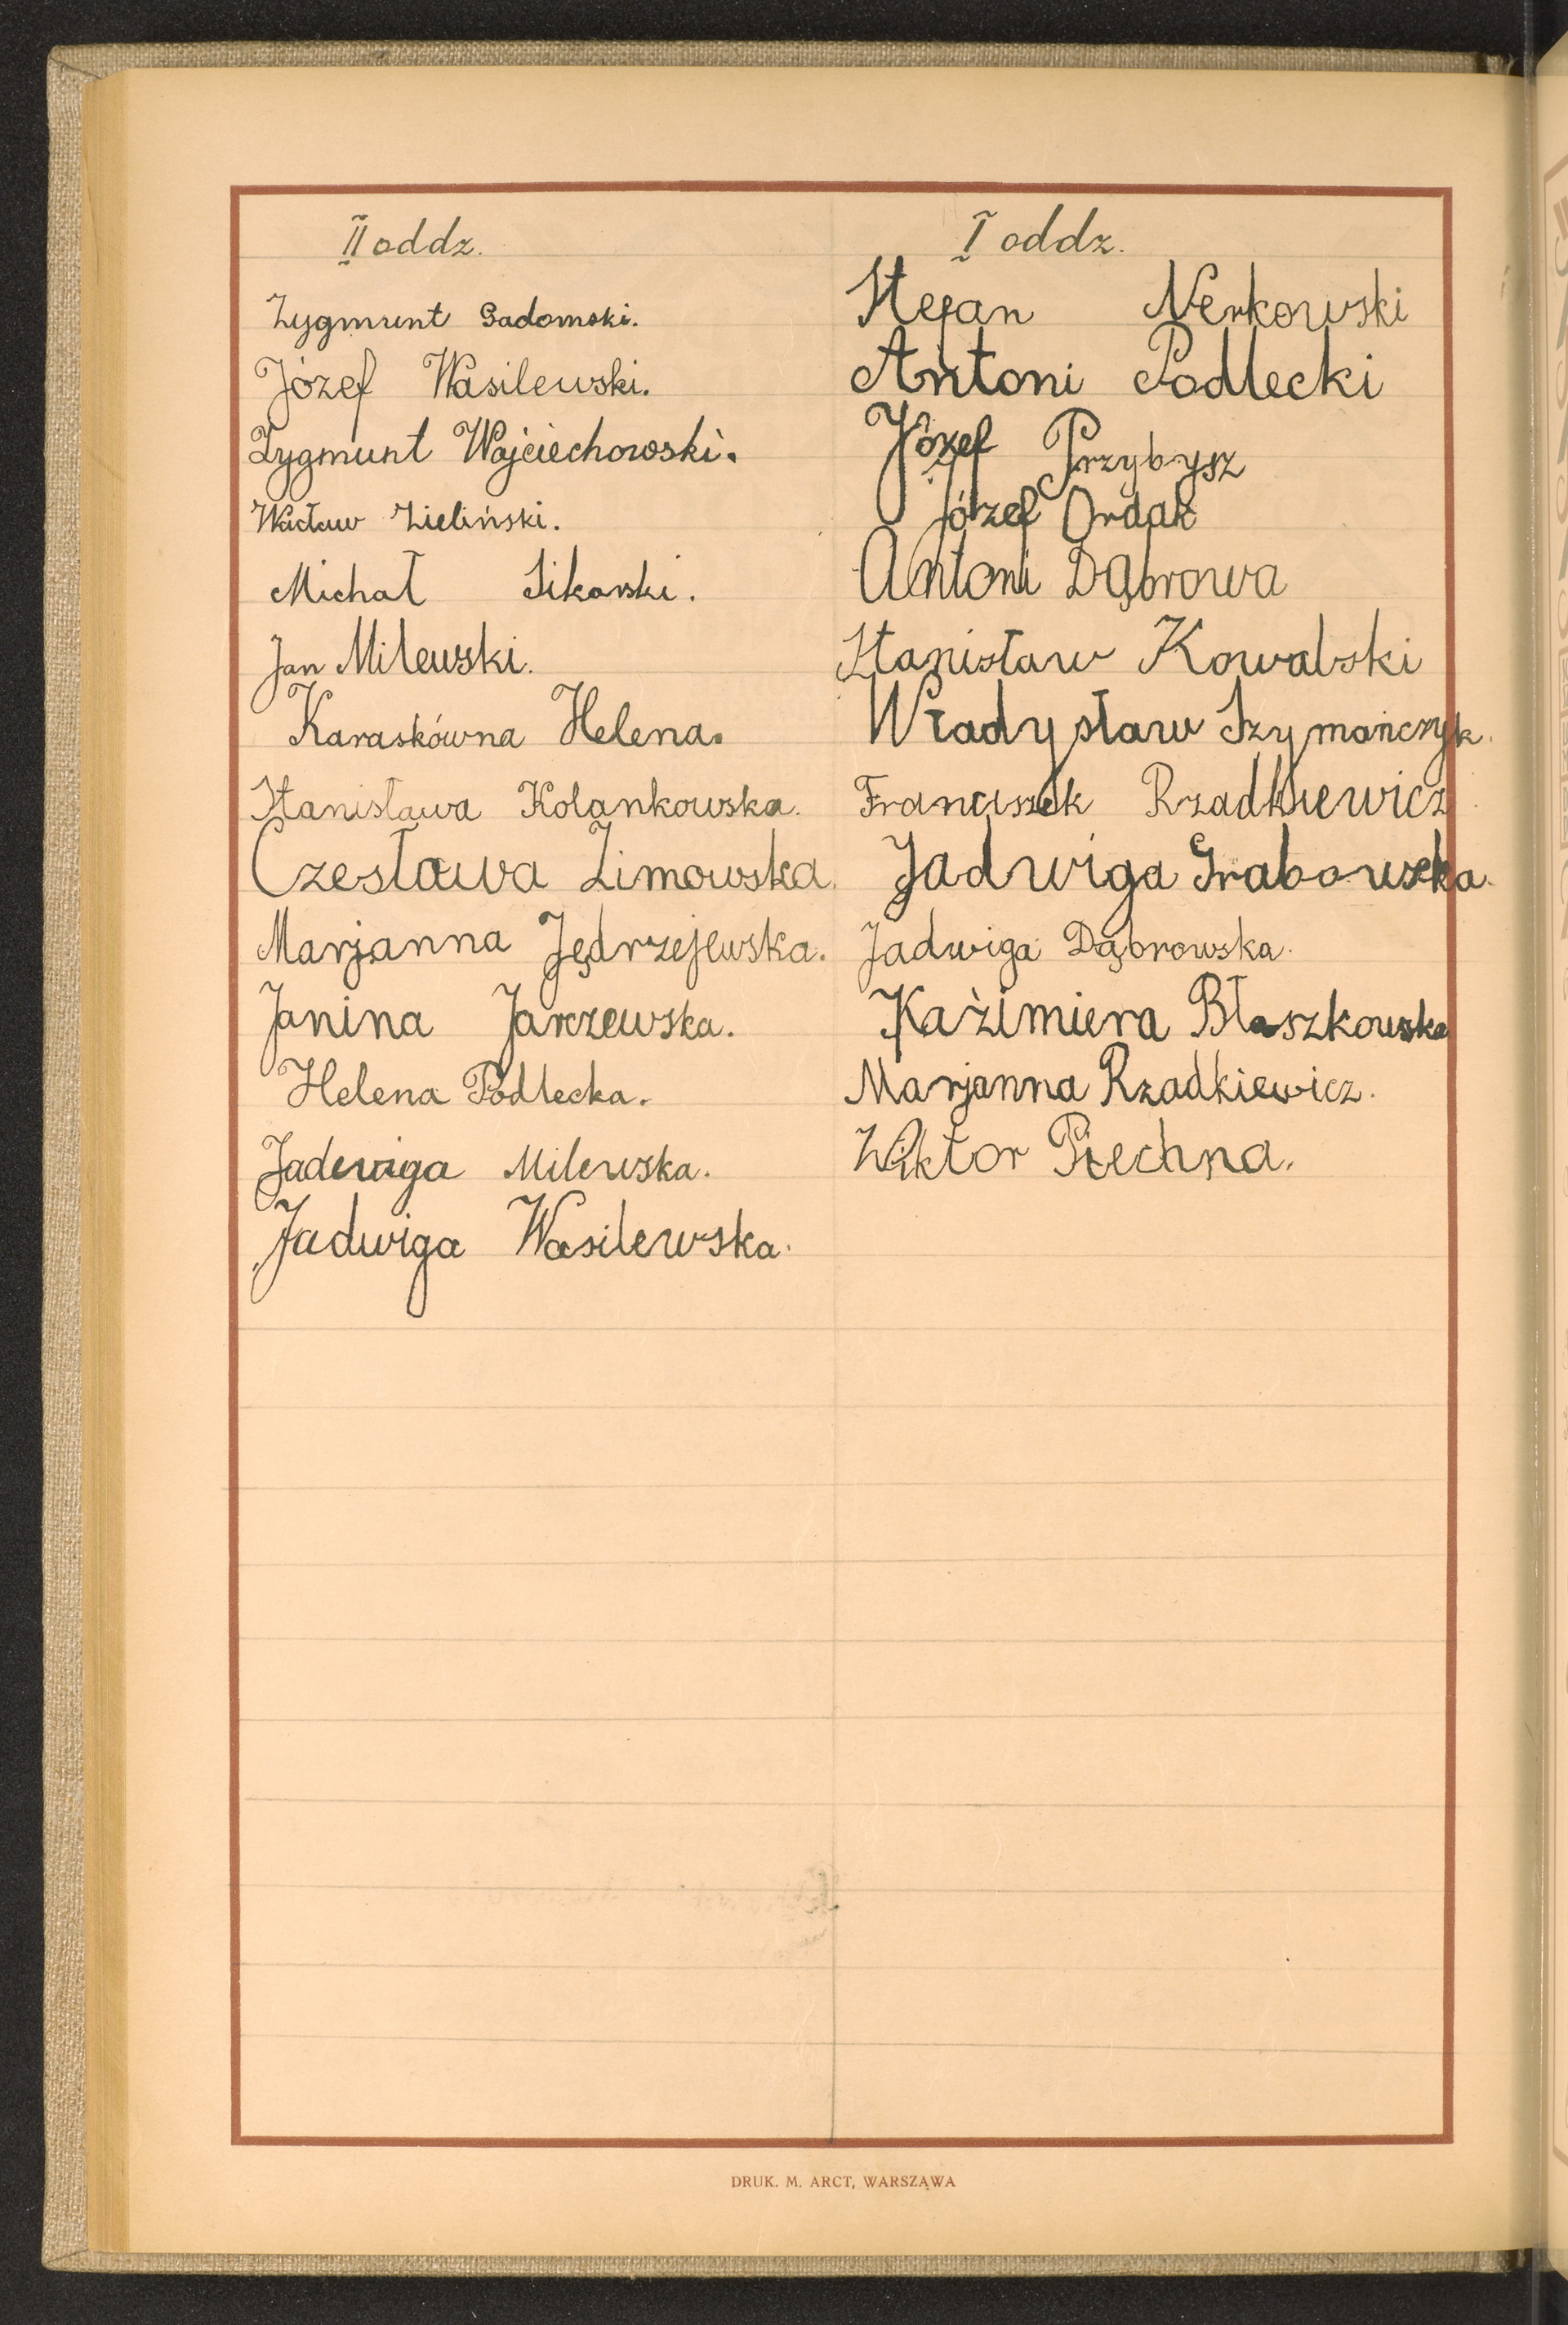 II oddz.
Zygmunt Sadomski.
Józef Wasilewski.
Zygmunt Wojciechowski.
Wacław Zieliński.
Michał Sikorski.
Jan Milewski.
Karaskówna Helena.
Stanisława Kolankowska.
Czesława Zimowska.
Marjanna Jędrzejewska.
Janina Jarczewska.
Helena Podlecka.
Jadwiga Milewska.
Jadwiga Wasilewska.
I oddz.
Stefan Nerkowski
Antoni Podlecki
Józef Przybysz
Józef Ordak
Antoni Dąbrowa
Stanisław Kowalski
Władysław Szymańczyk.
Franciszek Rzadkiewicz
Jadwiga Grabowska.
Jadwiga Dąbrowska.
Kaźimiera Błaszkowska
Marjanna Rzadkiewicz.
Wiktor Piechna.
DRUK. M. ARCT, WARSZAWA